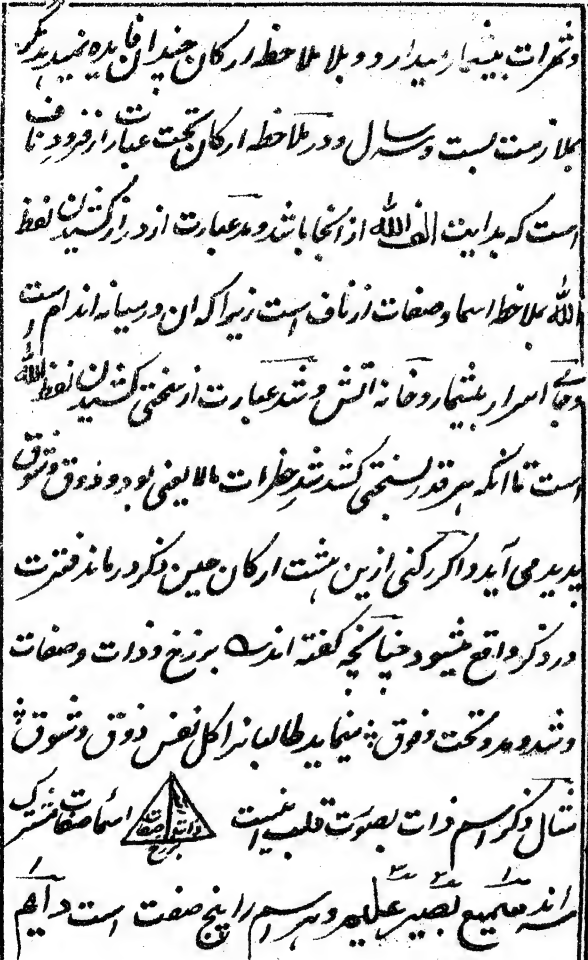 و ثمرات بیشمار میدارد و بلا ملاحظه ارکان چندان فایده نمیدهد مگر
بملازمت بست و سه سال و در ملاحظه ارکان تحت عبارت از فرود ناف
است که بدایت الف الله از آنجا باشد و مد عبارت از دراز کشیدن لفظ
الله بملاحظه اسما و صفات از ناف است زیرا که ان درمیانه اندام است
و جای اسرار بیشمار و خانه اتش و شد عبارت از سختی کشیدن لفظ الله
است تا انکه هر قدر بسختی کشد شد حظرات مالا یعنی بود و ذوق و شوق
پدید می آید و اگر رکنی ازین هشت ارکان حین ذکر در ماند فترت
در ذکر واقع میشود چنانچه گفته اند برزخ و ذات و صفات
و شد و مد و تحت و فوق ؛ مینماید طالبانرا کل نفس ذوق و شوق ؛
مثال ذکر اسم ذات بصورت قلب اینست ذات صفات برزخ اسماء صفات مشترک
سه اند سمیع بصیر علیم و هر اسم را پنج صفت است دایم